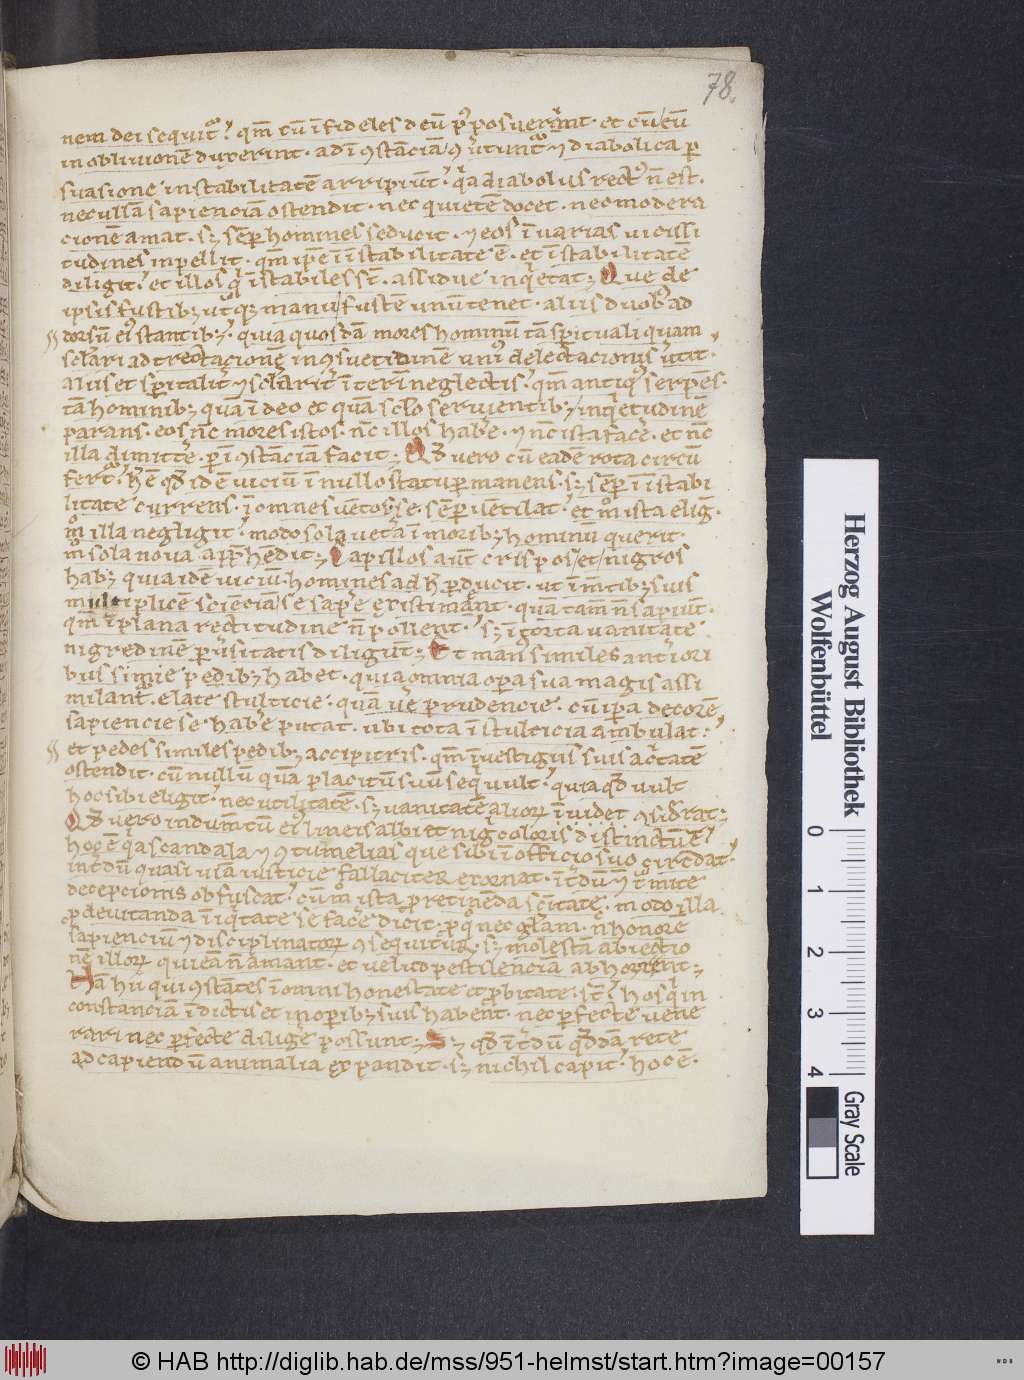 78.
nem dei sequit᷑. qm̄ cū īfideles deū p̱ posuerint. et cū eū
in obliuionē duxerint. ad īꝯstāciā ꝯuertunt᷑ ⁊ diabolica ꝑ
suasione instabilitatē arripiūt. qͥa diabolus rectꝰ n̄ est.
nec ullā sapienciā ostendit. nec quietē docet. nec modera
cionē amat. sꝫ sēꝑ homines seducit. ⁊ eos ī uarias uicissi
tudines inpellit. qm̄ ip̄e ī īstabilitate ē. et īstabilitatē
diligit. et illos qͥ īstabiles st̄. assidue inqͥetat; Que de
ipsis fustibꝫ utͣqꝫ manu fustē unū tenet. alius duobꝰ ad
dorsū eiꝰ stantibꝫ. quia quosdā mores hominū tā spirituali quam
sclari ad trectacionē in ꝯsuetidinē uniꝰ delectacionis uertit.
aliis et spiritalit᷑ ⁊ sclarit᷑ īterī neglectis. qm̄ antiqͥ serpēs.
tā hominibꝫ quā ī deo et quā sclo seruientibꝫ inqͥetudinē
parans. eos nc̄ mores istos. nc̄ illos habe᷑e. ⁊ nc̄ ista face᷑. et nc̄
illa dimitte᷑. ꝑ īꝯstāciā facit; Qd̄ vero cū eadē rota circū
fert᷑. h̄ ē qd̄ id ē viciū ī nullo statu ꝑmanens. sꝫ sēꝑ ī īstabi
litate currens. ī omnes uētos se sēꝑ uētilat. et m̊ ista eliḡ.
m̊ illa negligit. modo sola ueta ī moribꝫ hominū querit.
m̊ sola noua app̱hēdit; Capillos aūt crispos et nigros
habꝫ quia idē uiciū homines ad h̄ ꝑducit. ut ī mtibꝫ suis
multiplicē scienciā se sape᷑ existimant. quā tam̄ n̄ sapiūt.
qm̄ ī plana rectitudine n̄ pollent. sꝫ ī torta uanitate
nigredinē ꝑuersitatis diligūt; Et man᷑ similes antiori
bus simie pedibꝫ habet. quia omnia oꝑa sua magis assi
milant᷑. elate stulticie. quā ue᷑ prudencie. cū ip̄a decorē
sapiencie se habe᷑e putat. ubi tota ī stulticia ambulat:
et pedes similes pedibꝫ accipitris. qm̄ ī uestigiis suis acͥtatē
ostendit. cū nullū quā placitū suū seqͥ uult. quia qd̄ vult
hoc sibi eligit. nec utilitatē. sꝫ uanitatē alioꝝ ī videt ꝯsiderat;
Qd̄ vero indumtū eiꝰ lineis albi et nig̃ coloris distinctū ē.
hoc ē qͥa scandala ⁊ ꝯtumelias que sibi ī officio suo circūdat.
int᷑dū quasi uiā iusticie fallaciter exornat. īt᷑dū ⁊
decepcionis obfuscat. cū m̊ ista ꝓ retinēda sc̄itatē. modo illa
ꝓ deuitanda īiqͥtate se face᷑ dicit. ꝑ qͦ nec gl̄am. n̄ honorē
sapienciū ⁊ disciplinatoꝝ ꝯsequitur. sꝫ molestā abiectio
nē illoꝝ qui eā n̄ amant. et uelud pestilenciā abhorrent;
Nā hii qui ꝯstātes ī omni honestate et ꝓbitate st̄. hos qͥ in
constanciā ī dictis et in oꝑibꝫ suis habent. nec ꝑfecte uene
rari nec ꝑfecte dilige᷑ possunt; Sꝫ qd̄ īt᷑dū qd̄dā rete
ad capiendū animalia expandit. sꝫ nichil capit. hoc ē.
Herzog August Bibliothek
Wolfenbüttel
0 1 2 3 4
Gray Scale
© HAB http://diglib.hab.de/mss/951-helmst/start.htm?image=00157